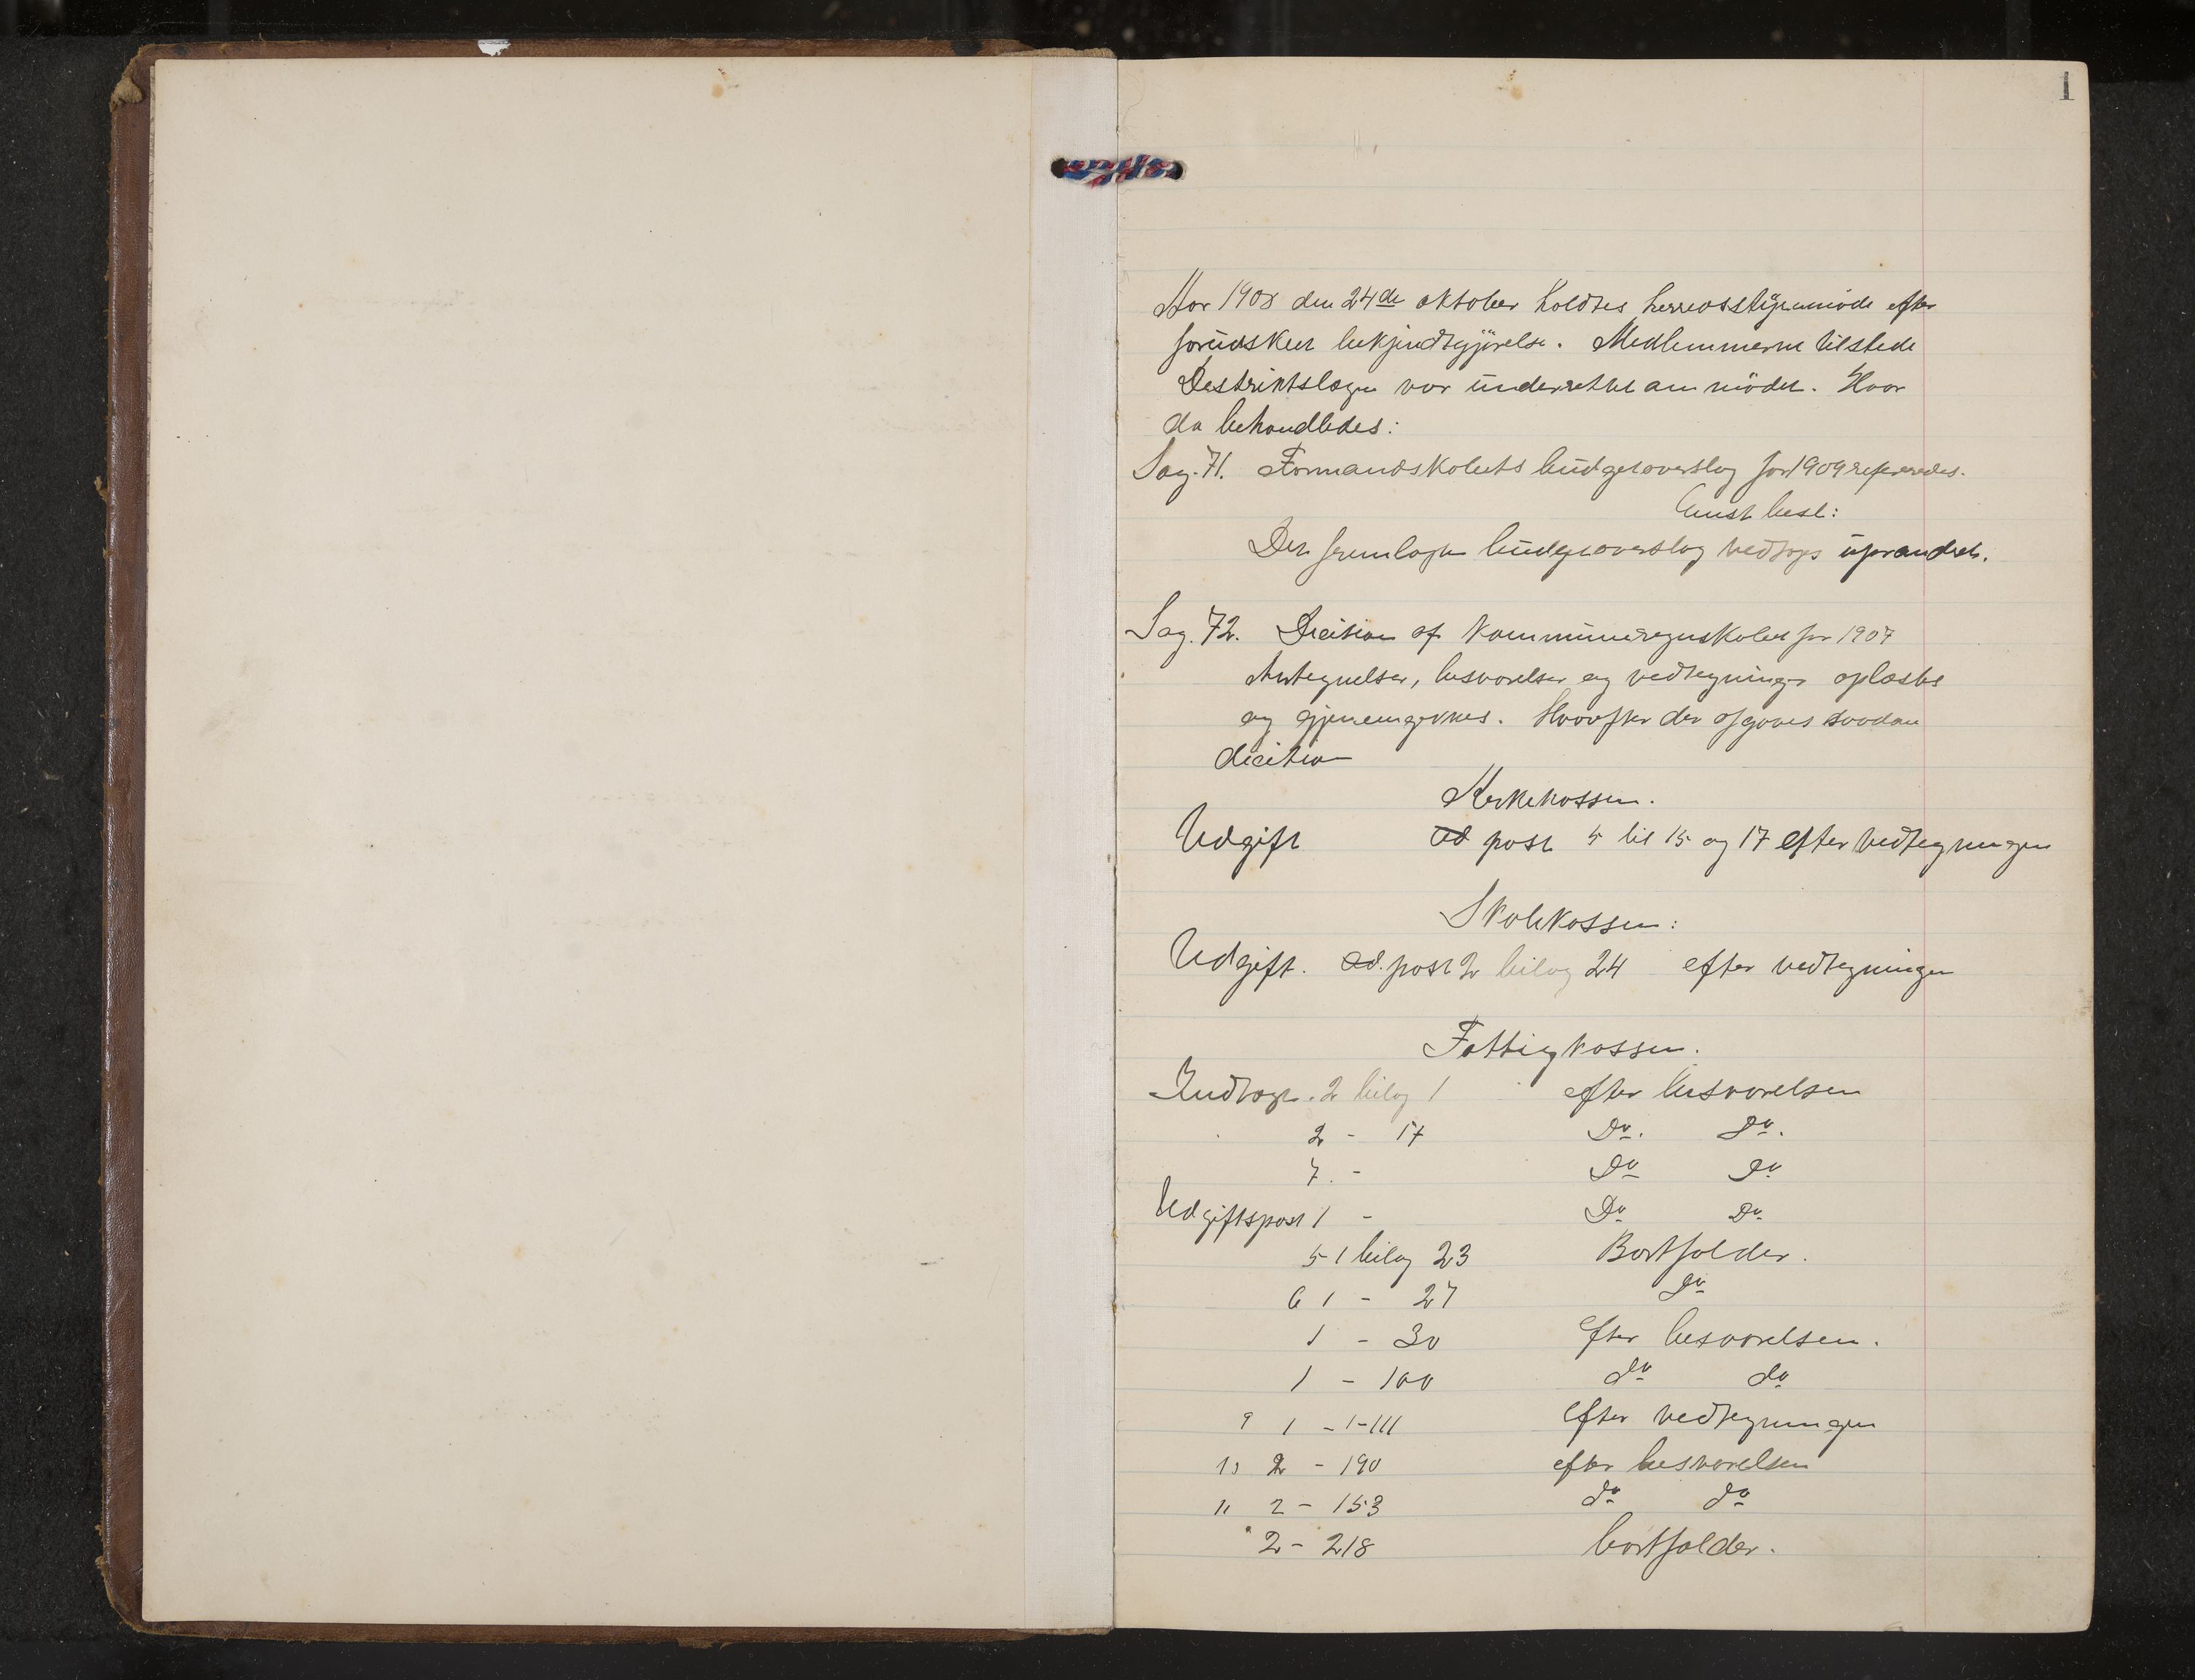 1
Aar 1908 den 24de oktober holdtes herredsstyremöde efter
forudskeet bekjendtgjörelse. Medlemmerne tilstede
Destriktslægen var underrettet om mödet. Hvor
da behandledes:
Sag. 71. Formandskabets budgetoverslag for 1909 refereredes.
Eenst besl:
Det fremlagte budgetoverslag vedtoges uforandret.
Sag. 72. Decition af kommuneregnskabet for 1907
Antegnelser, besvarelser og vedtegninger oplæstes
og gjennemgikkes. Hvorefter der afgaves saadan
decition
Kirkekassen.
Udgift ad post 5 til 15 og 17 efter vedtegningen
Skolekassen:
Udgift. ad. post 2 bilag 24 efter vedtegningen
Fattigkassen.
Indtægt. 2 bilag 1 efter besvarelsen
2 - 17 Do. Do.
7. - Do Do
Udgiftspost 1 - Do Do
5 1 bilag 23 Bortfalder.
6 1 - 27 Do
1 - 30 Efter besvarelsen.
1 - 100 do do
9 1 - 1-111 Efter vedtegningen
10 2 - 190 efter besvarelsen
11 2 - 153 do do
2 - 218 bortfalder.